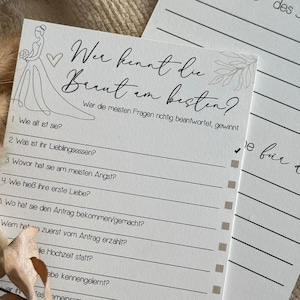 Wer kennt die
Braut am besten?
Wer die meisten Fragen richtig beantwortet, gewinnt
1. Wie alt ist sie?
2. Was ist ihr Lieblingsessen?
3. Wovor hat sie am meisten Angst?
4. Wie hieß ihre erste Liebe?
Wo hat sie den Antrag bekommen/gemacht?
Wem hat zuerst vom Antrag erzählt?
die Hochzeit statt?
kennengelernt?
des
für d